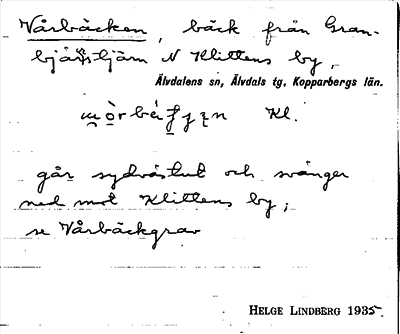 Vårbäcken, bäck från Gran-
bjärstjärn N Klittens by,
Älvdalens sn, Älvdals tg, Kopparbergs län.
Kl.
går sydvästut och svänger
ned mot Klittens by;
se Vårbäckgrav
HELGE LINDBERG 1935.